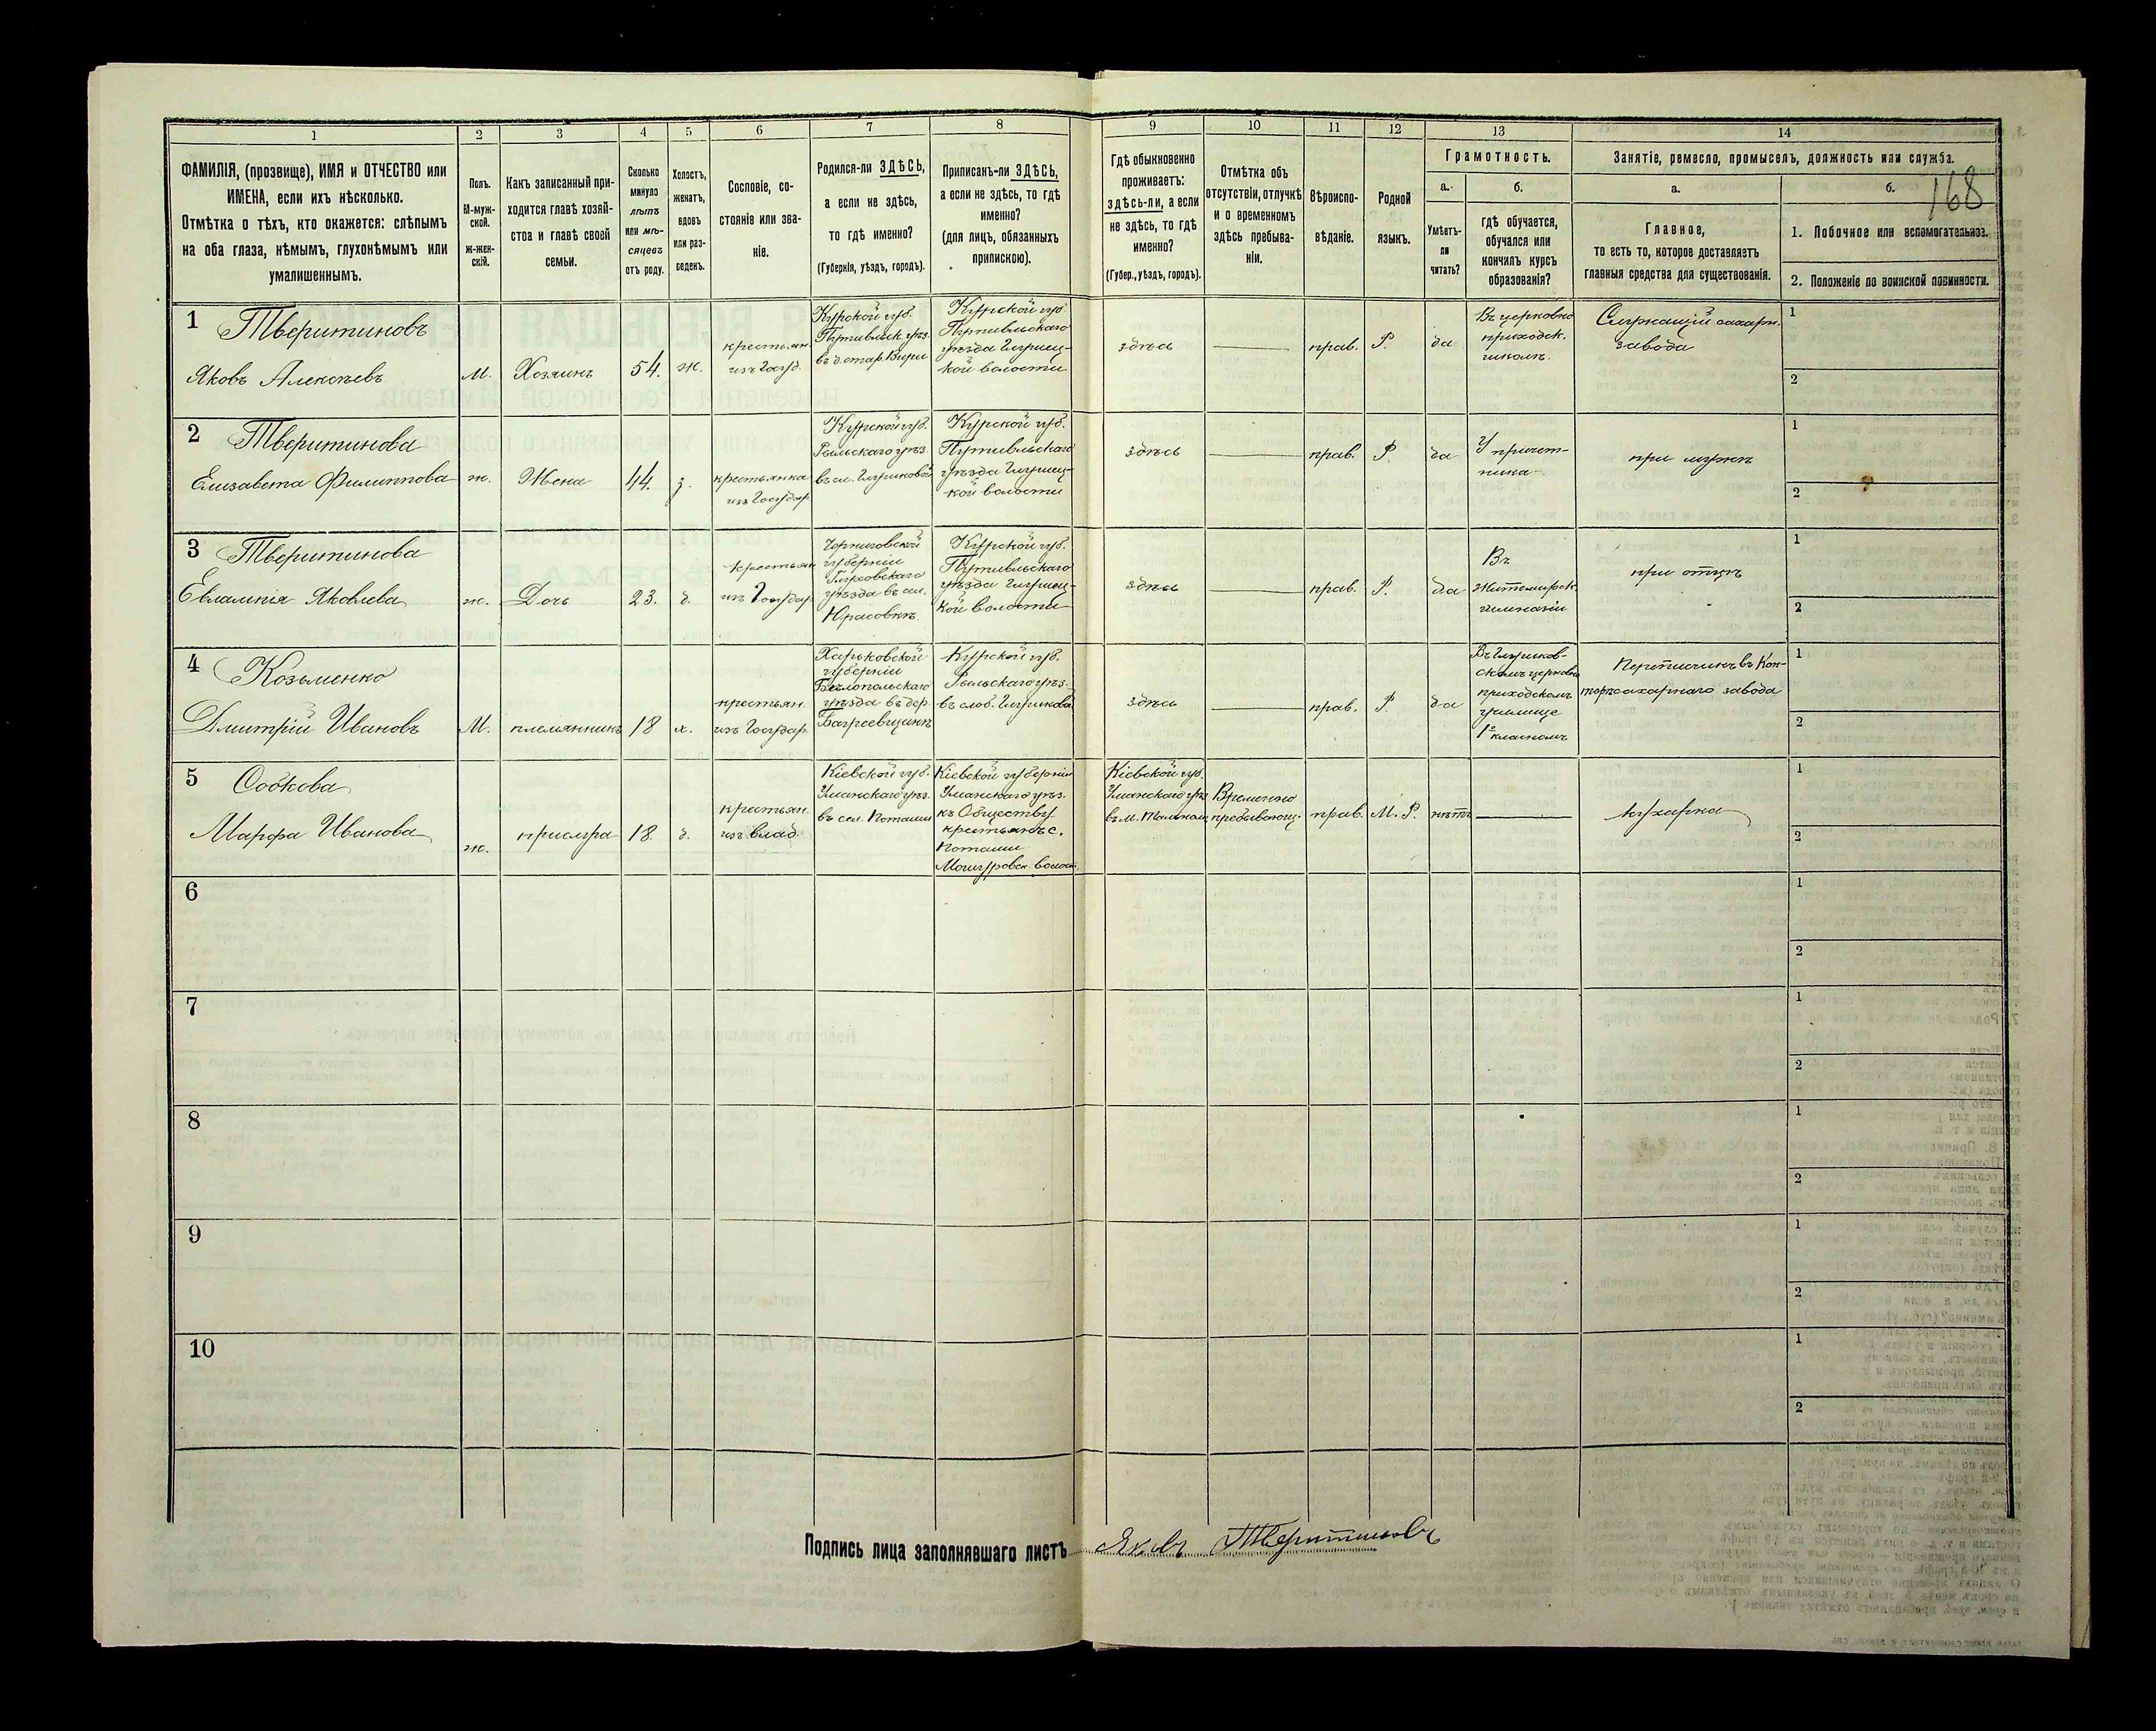 1
2
3
4
5
6
7
8
9
10
11
12
13
14
ФАМИЛІЯ, (прозвище), ИМЯ и ОТЧЕСТВО или
ИМЕНА, если ихъ нѣсколько.
Отмѣтка о тѣхъ, кто окажется: слѣпымъ
на оба глаза, нѣмымъ, глухонѣмымъ или
умалишеннымъ.
Полъ.
М-муж-
ской.
ж-жен-
скій.
Какъ записанный при-
ходится главѣ хозяй-
ства и главѣ своей
семьи.
Сколько
минуло
лѣтъ
или мѣ-
сяцевъ
отъ роду.
Холостъ,
женатъ,
вдовъ
или раз-
веденъ.
Сословіе, со-
стояніе или зва-
ніе.
Родился-ли ЗДѢСЬ,
а если не здѣсь,
то гдѣ именно?
(Губернія, уѣздъ, городъ).
Приписанъ-ли ЗДѢСЬ,
а если не здѣсь, то гдѣ
именно?
(для лицъ, обязанныхъ
припискою).
Гдѣ обыкновенно
проживаетъ:
здѣсь-ли, а если
не здѣсь, то гдѣ
именно?
(Губер., уѣздъ, городъ).
Отмѣтка объ
отсутствіи, отлучкѣ
и о временномъ
здѣсь пребыва-
ніи.
Вѣроиспо-
вѣданіе.
Родной
языкъ.
Грамотность.
а.
б.
Умѣетъ-
ли
читать?
гдѣ обучается,
обучался или
кончилъ курсъ
образованія?
Занятіе, ремесло, промыселъ, должность или служба.
а.
б.
168
Главное,
то есть то, которое доставляетъ
главныя средства для существованія.
1. Побочное или вспомогательное.
2. Положеніе по воинской повинности.
1
Тверитиновъ
Яковъ Алексѣевъ
М.
Хозяинъ
54.
ж.
крестьян.
изъ Госуд.
Курской губ.
Путивльск. уѣз.
Курской губ.
Путивльскаго
уѣзда
кой волости
здѣсь
прав.
Р.
да
Въ церковно
приходск.
школѣ.
Служащій сахарн.
завода
1
2
2
Тверитинова
Елизавета Филиппова
ж.
Жена
44.
з.
крестьянка
изъ Государ.
Курской губ.
Рыльскаго уѣз.
Курской губ.
Путивльскаго
уѣзда
кой волости
здѣсь
прав.
Р.
да
У причет-
ника
при мужѣ
1
2
3
Тверитинова
Евлампія Яковлева
ж.
Дочь
23.
д.
крестьян.
изъ Государ.
Черниговской
губерніи
Глуховскаго
уѣзда въ сел.
Юрасовкѣ.
Курской губ.
Путивльскаго
уѣзда
кой волости
здѣсь
прав.
Р.
да
Въ
Житомирск.
гимназіи
при отцѣ
1
2
4
Козьменко
Дмитрій Ивановъ
М.
племянникъ
18
х.
крестьян.
изъ Государ.
Харьковской
губерніи
Бѣлопольскаго
уѣзда въ дер.
Курской губ.
Рыльскаго уѣз.
въ слоб.
здѣсь
прав.
Р.
да
скомъ церковно
приходскомъ
училище
1о класномъ
Переписчикъ въ Кон-
торѣ сахарнаго завода
1
2
5
Собкова
Марфа Иванова
ж.
прислуга
18.
д.
крестьян.
изъ влад.
Кіевской губ.
Уманскаго уѣз.
въ сел. Поташи
Кіевской губерніи
Уманскаго уѣз.
къ Обществу
крестьянъ с.
Поташи
Кіевской губ.
Уманскаго уѣз.
въ м. Тальном
Временно
пребывающ.
прав.
М. Р.
нѣтъ
кухарка
1
2
6
1
2
7
1
2
8
1
2
9
1
2
10
1
2
Подпись лица заполнявшаго листъ
Яковъ Тверитиновъ